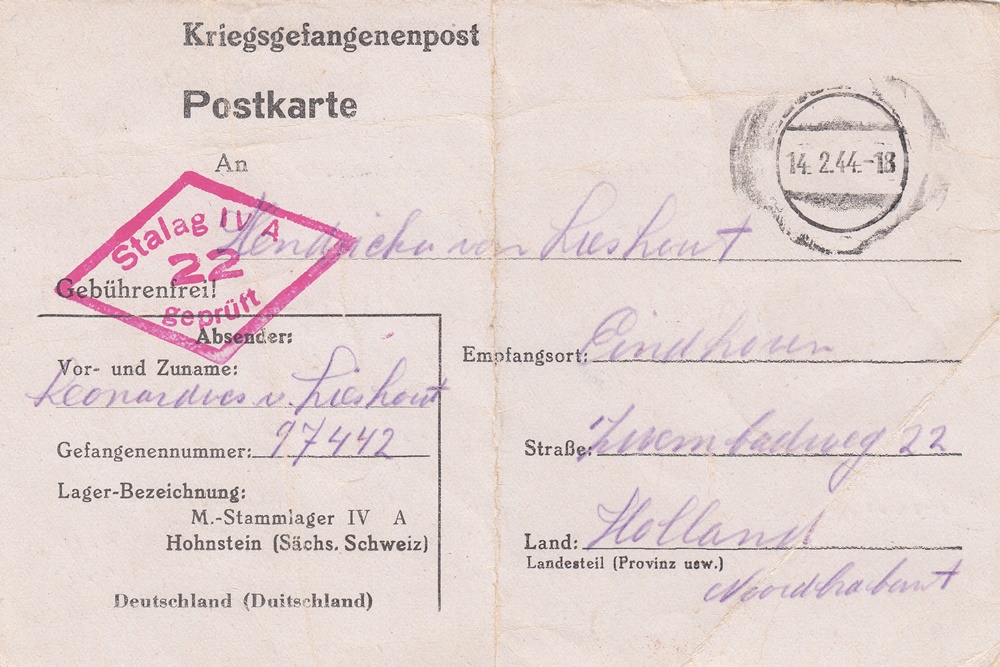 Kriegsgefangenenpost
Postkarte
An
14.2.44.-18
Stalag IV A
22
geprüft
Hendricka van Lieshout
Gebührenfrei!
Absender:
Vor- und Zuname:
Leonardus v. Lieshout
Gefangenennummer: 97442
Lager-Bezeichnung:
M.-Stammlager IV A
Hohnstein (Sächs. Schweiz)
Deutschland (Duitschland)
Empfangsort: Eindhoven
Straße: Zwembadweg 22
Land: Holland
Landesteil (Provinz usw.)
Noordbrabant